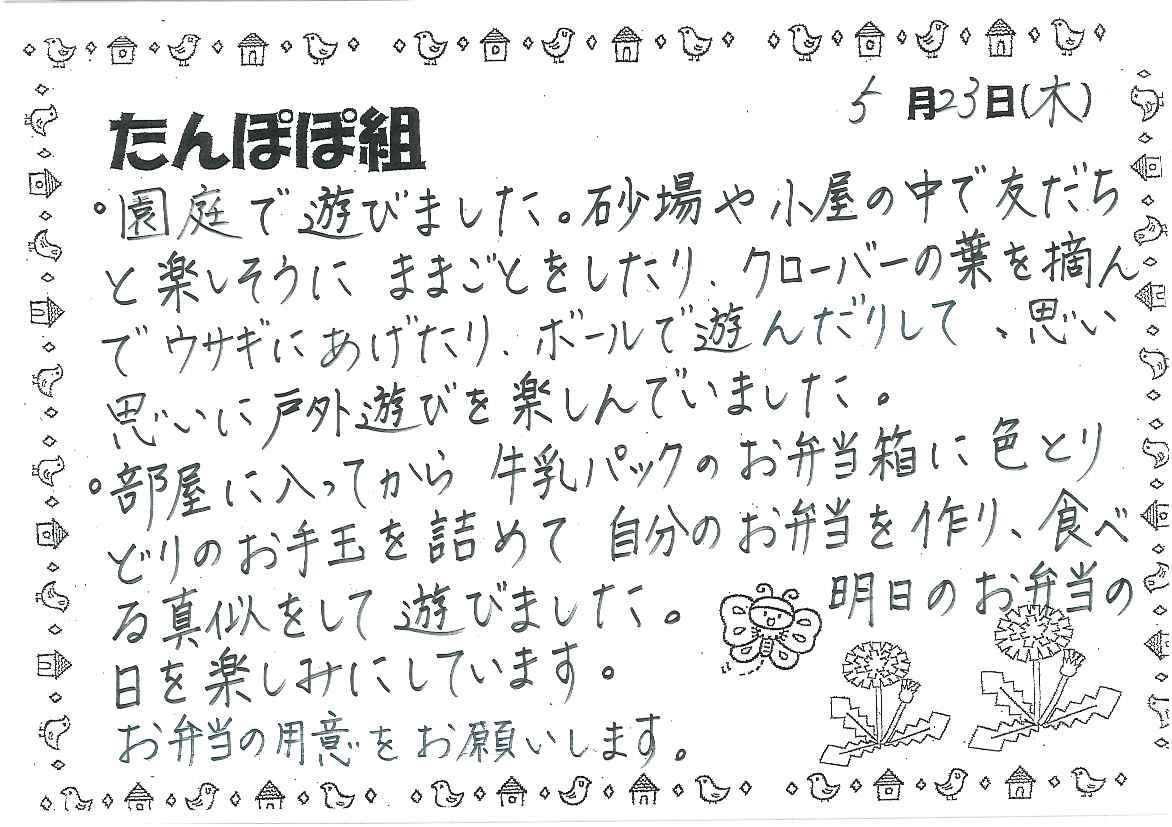 5月23日(木)
たんぽぽ組
。園庭で遊びました。砂場や小屋の中で友だち
と楽しそうにままごとをしたり、クローバーの葉を摘ん
でウサギにあげたり、ボールで遊んだりして、思い
思いに戸外遊びを楽しんでいました。
。部屋に入ってから牛乳パックのお弁当箱に色とり
どりのお手玉を詰めて自分のお弁当を作り、食べ
る真似をして遊びました。明日のお弁当の
日を楽しみにしています。
お弁当の用意をお願いします。